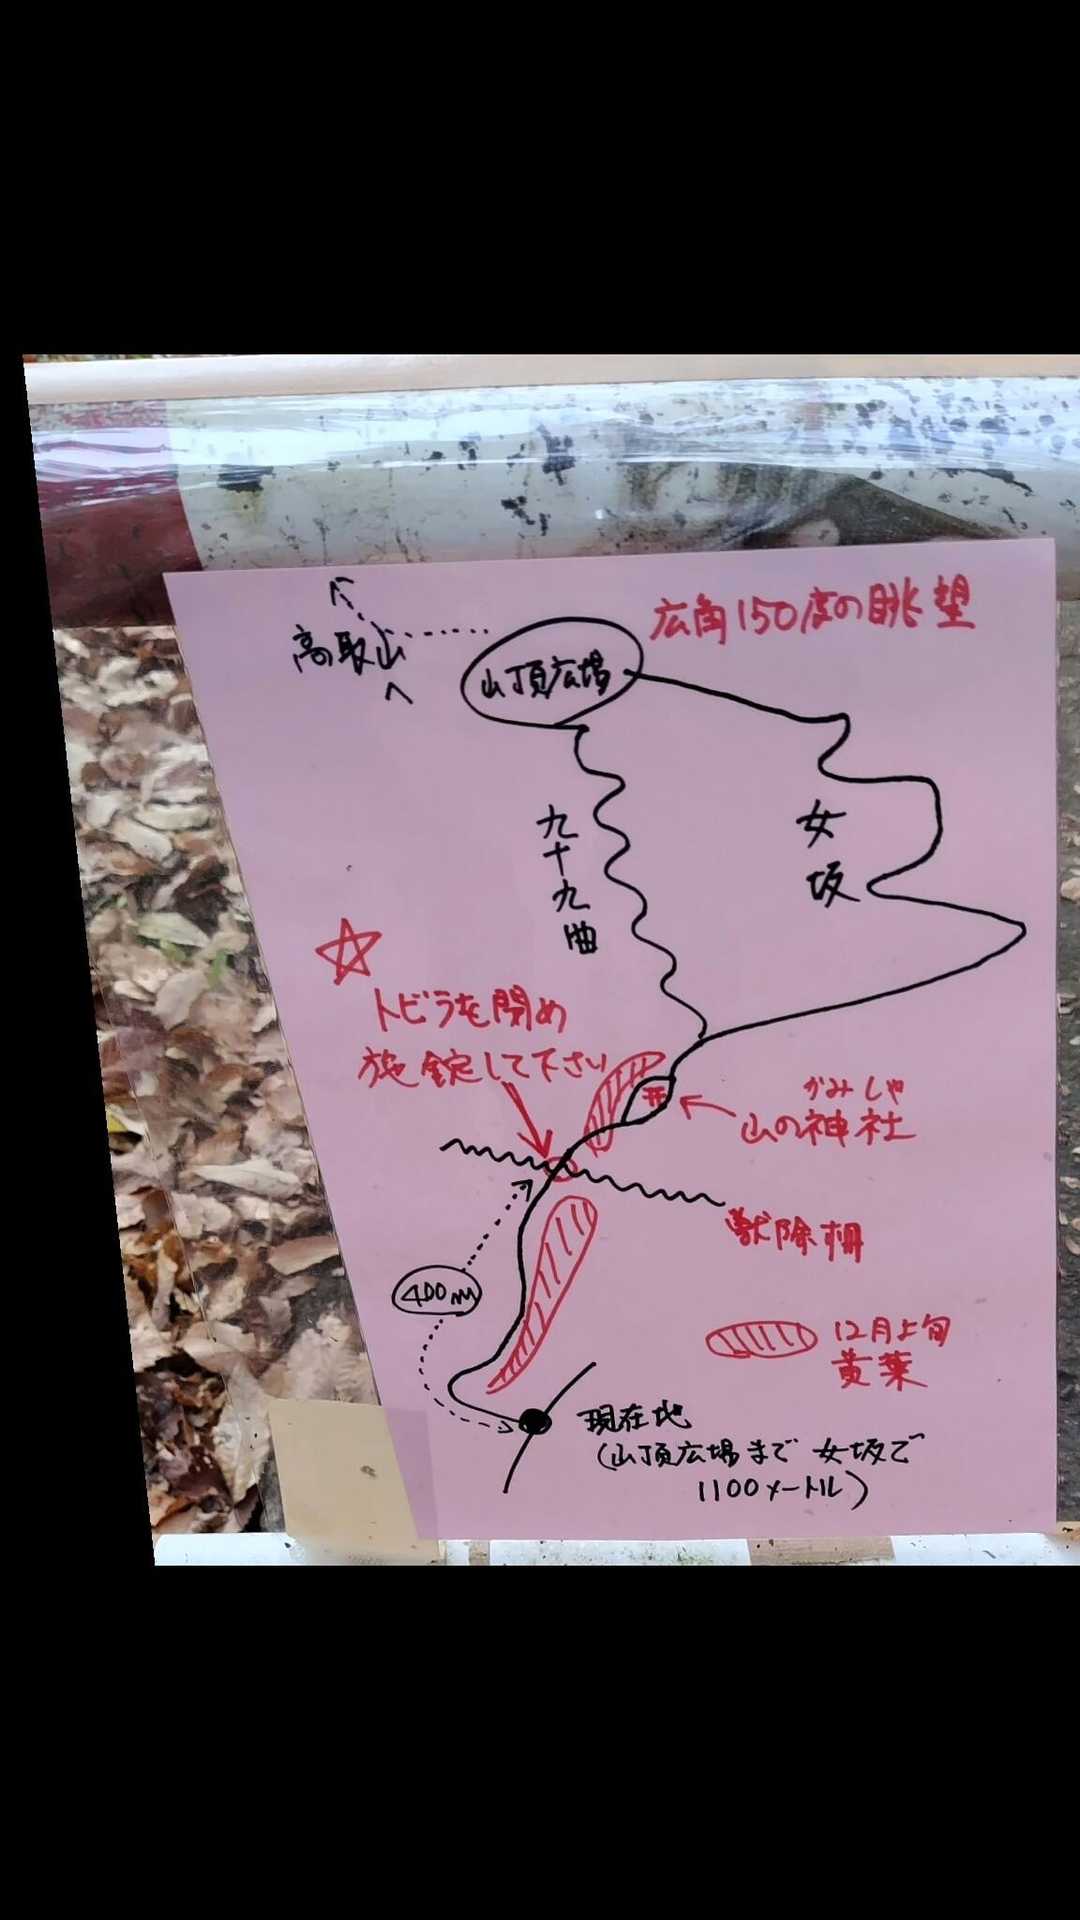 広角150度の眺望
高取山
へ
山頂広場
九十九曲
女坂
トビラを閉め
施錠して下さい
かみしゃ
山の神社
獣除柵
400m
12月上旬
黄葉
現在地
(山頂広場まで 女坂で
1100メートル)